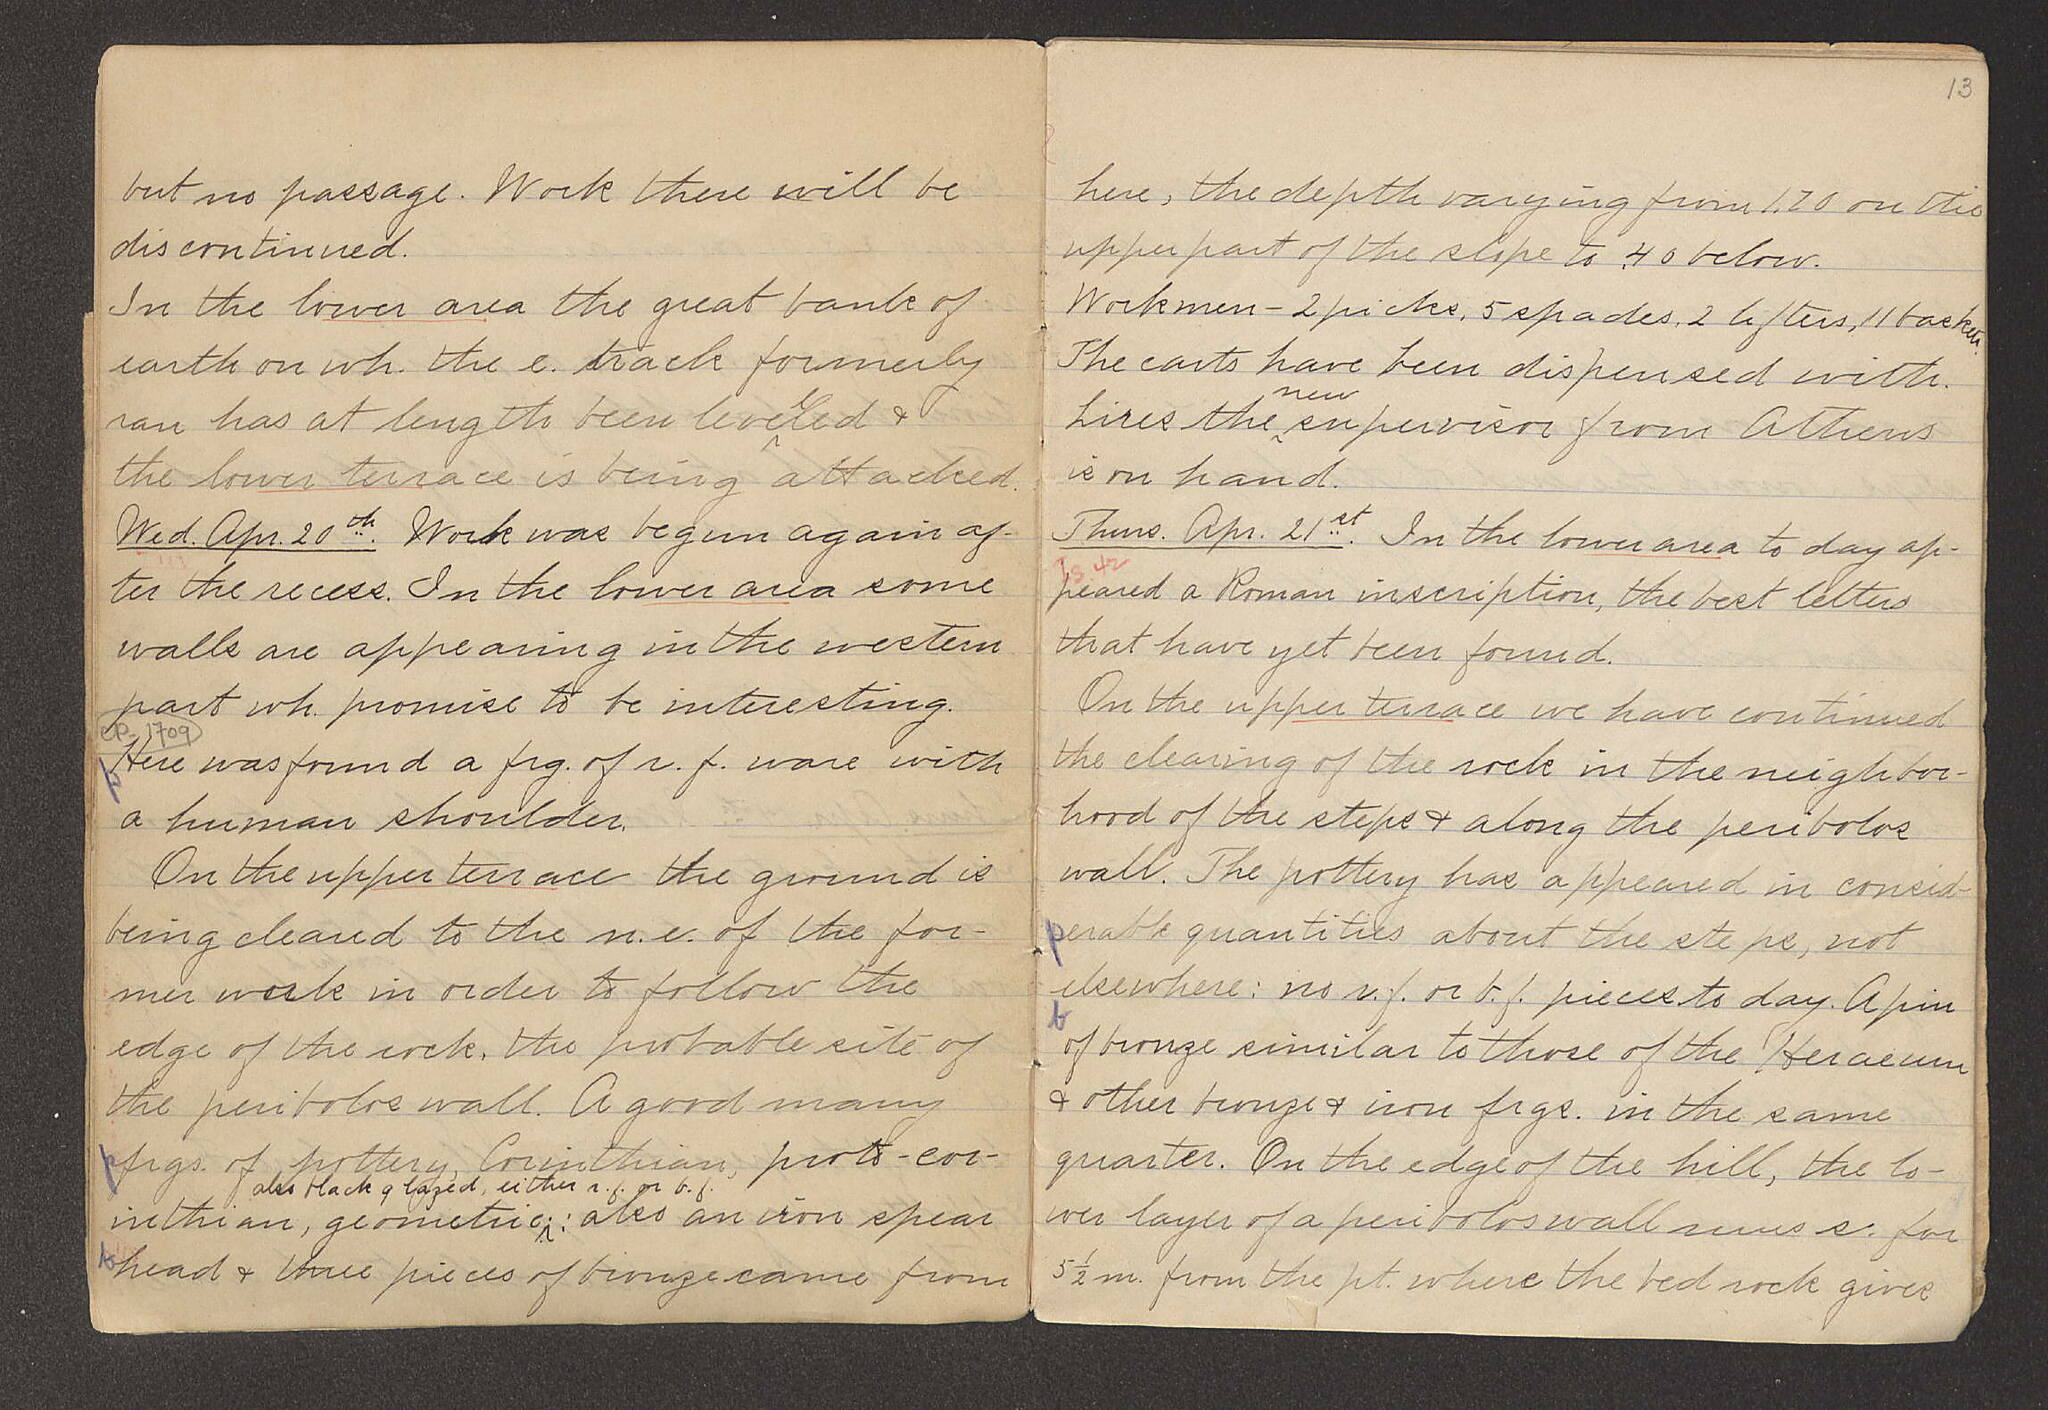 but no passage. Work there will be
discontinued.
In the lower area the great bank of
earth on wh. the e. track formerly
ran has at length been levelled &
the lower terrace is being attacked.
Wed. Apr. 20th. Work was begun again af-
ter the recess. In the lower area some
walls are appearing in the western
part wh. promise to be interesting.
cp. 1709
Here was found a frg. of r.f. ware with
p
a human shoulder.
On the upper terrace the ground is
being cleared to the n.e. of the for-
mer work in order to follow the
edge of the rock, the probable site of
the peribolos wall. A good many
p frgs. of pottery, Corinthian, proto-cor-
also black glazed, either r.f. or b.f.
inthian, geometric; : also an iron spear
b head & three pieces of bronze came from
13
here, the depth varying from 1.20 on the
upper part of the slope to .40 below.
Workmen – 2 picks, 5 spades, 2 lifters, 11 baskets.
The carts have been dispensed with.
new
the supervisor from Athens
is on hand.
Thurs. Apr. 21st. In the lower area to day ap-
peared a Roman inscription, the best letters
that have yet been found.
On the upper terrace we have continued
the clearing of the rock in the neighbor-
hood of the steps & along the peribolos
wall. The pottery has appeared in consid-
p erable quantities about the steps, not
elsewhere: no r.f. or b.f. pieces to day. A pin
b
of bronze similar to those of the Heraeum
& other bronze & iron frgs. in the same
quarter. On the edge of the hill, the lo-
wer layer of a peribolos wall runs s. for
5 ½ m. from the pt. where the bed rock gives